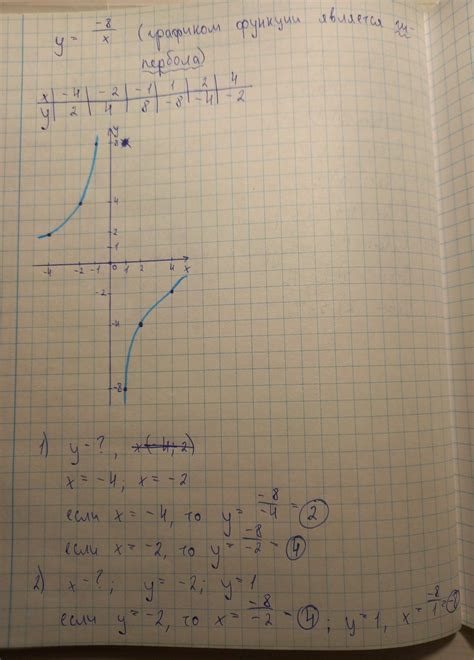 y = -8/x (графиком функции является ги-
пербола)
x | -4 | -2 | -1 | 1 | 2 | 4
y | 2 | 4 | 8 | -8 | -4 | -2
y
8
4
2
1
-4 -2 -1 0 1 2 4 x
-2
-4
-8
1) y - ?, x(-4; 2)
x = -4; x = -2
если x = -4, то y = -8/-4 = 2
если x = -2, то y = -8/-2 = 4
2) x - ?; y = -2; y = 1
если y = -2, то x = -8/-2 = 4; y = 1, x = -8/1 = -8